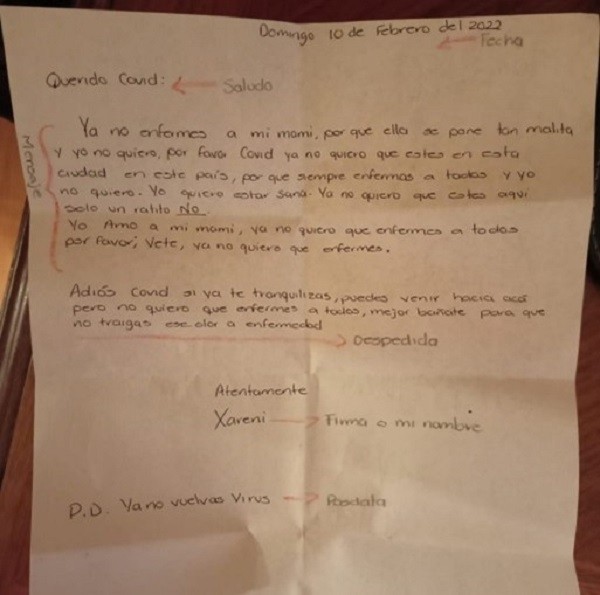 Domingo 10 de Febrero del 2022
Fecha
Querido Covid: Saludo
Mensaje
Ya no enfermes a mi mami, por que ella se pone tan malita
y yo no quiero, por favor Covid ya no quiero que estes en esta
ciudad en este país, por que siempre enfermas a todos y yo
no quiero. Yo quiero estar sana. Ya no quiero que estes aqui
solo un ratito No.
Yo Amo a mi mami, ya no quiero que enfermes a todos
por favor, Vete, ya no quiero que enfermes.
Adiós Covid si ya te tranquilizas, puedes venir hacia acá
pero no quiero que enfermes a todos, mejor bañate para que
no traigas ese olor a enfermedad
Despedida
Atentamente
Xareni Firma o mi nombre
P.D. Ya no vuelvas Virus Posdata